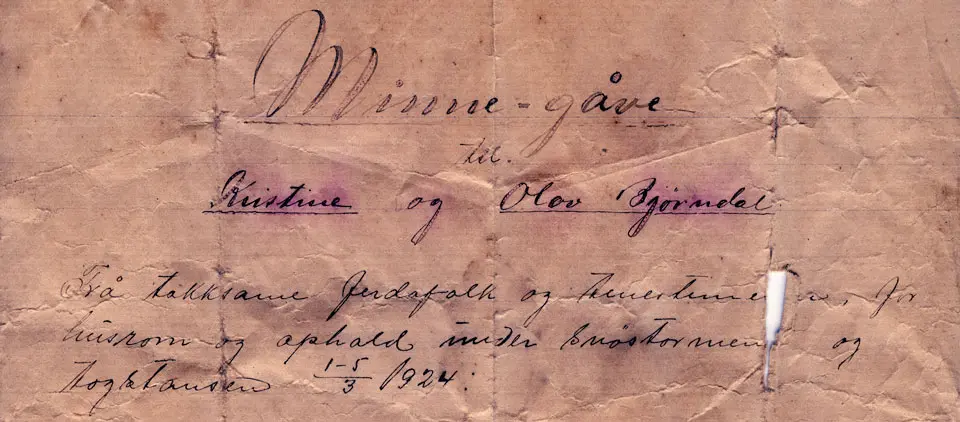 Minne-gåve
til.
Kristine og Olav Bjørndal
Frå takksame ferdafolk og for
husrom og ophald under snöstormen og
togstansen 1-5/3 1924: